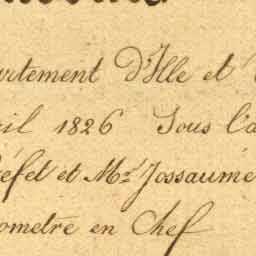 artement d'Ille et
il 1826 Sous l'a
éfet et Mr. Jossaume
ometre en Chef